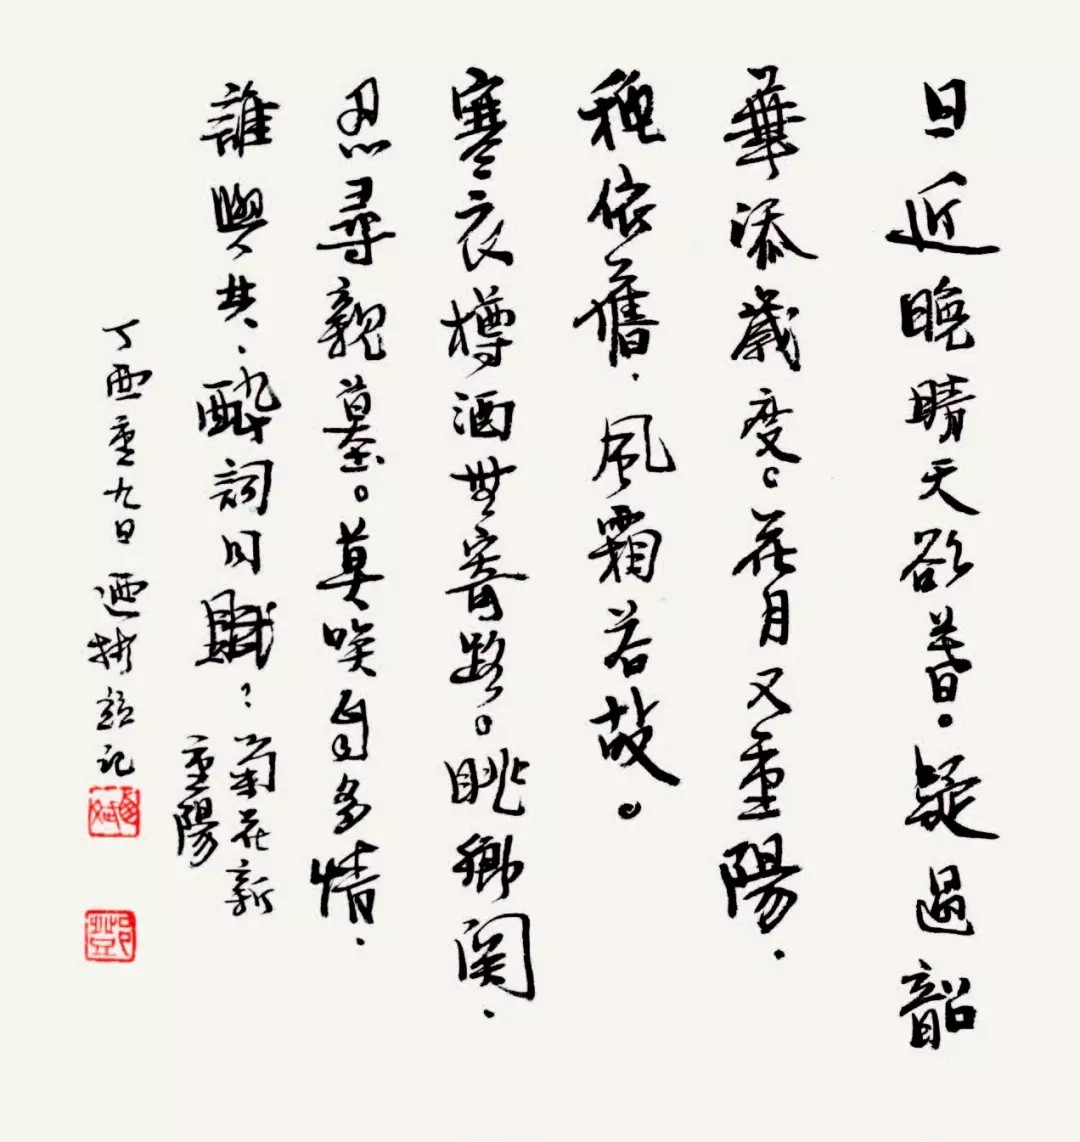 日近晚晴天欲暮。疑過韶
華添歲度。花月又重陽,
秪依舊,風霜若故。
寒衣樽酒無寄路。眺鄉関,
忍尋親墓。莫唉自多情,
誰與共,醉詞同賦?菊花新
重陽
丁酉重九日
記